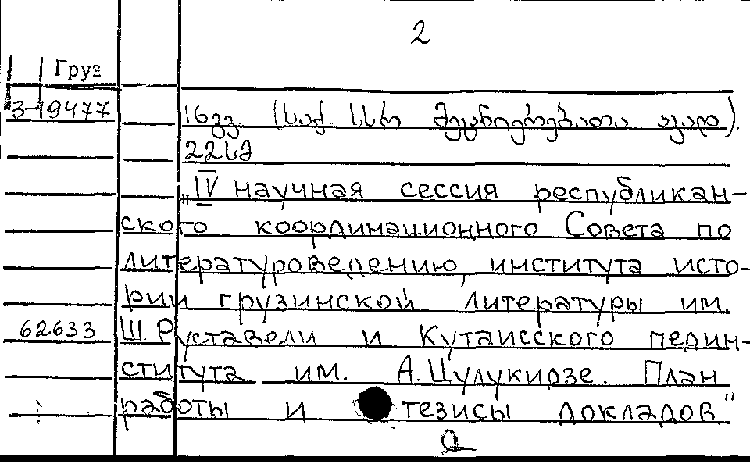 2
Груз
3-19477
16გვ. (საქ. სსრ მეცნიერებათა აკად.).
„IV научная сессия республикан-
ского координационного Совета по
литературоведению, института исто-
рии грузинской литературы им.
62633 Ш. Руставели и Кутаисского педин-
ститута им. А. Цулукидзе. План
работы и тезисы докладов"